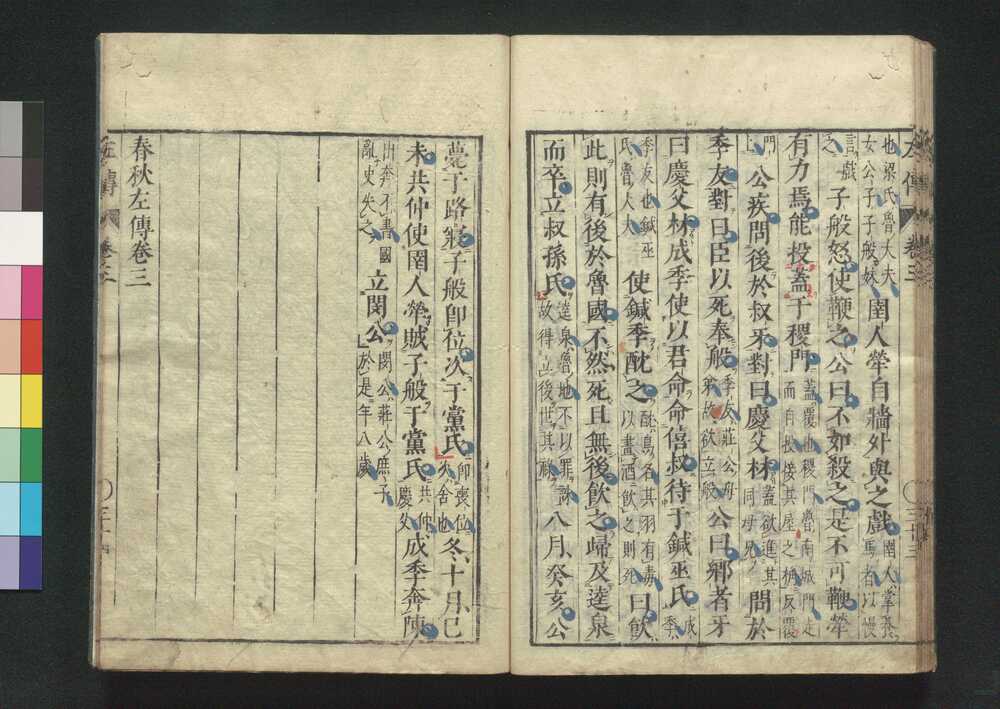 左傳 卷三 三十三
也梁氏魯大夫女公子子般妹圉人犖自牆外與之戲圉人掌養馬者以慢
言戲之子般怒使鞭之公曰不如殺之是不可鞭犖
有力焉能投蓋于稷門蓋覆也稷門魯南城門走而自投接其屋之桷反覆
門上公疾問後於叔牙對曰慶父材蓋欲進其同母兄問於
季友對曰臣以死奉般季友莊公母弟故欲立般公曰鄉者牙
曰慶父材成季使以君命命僖叔待于鍼巫氏成季
季友也鍼巫氏魯大夫使鍼季酖之酖鳥名其羽有毒以畫酒飲之則死曰飲
此則有後於魯國不然死且無後飲之歸及逵泉
而卒立叔孫氏逵泉魯地不以罪誅故得立後世其祿八月癸亥公
薨于路寢子般卽位次于黨氏卽喪位次舍也冬十月己
未共仲使圉人犖賊子般于黨氏共仲慶父成季奔陳
出奔不書國亂史失之立閔公閔公莊公庶子於是年八歲
春秋左傳卷三
左傳 卷三